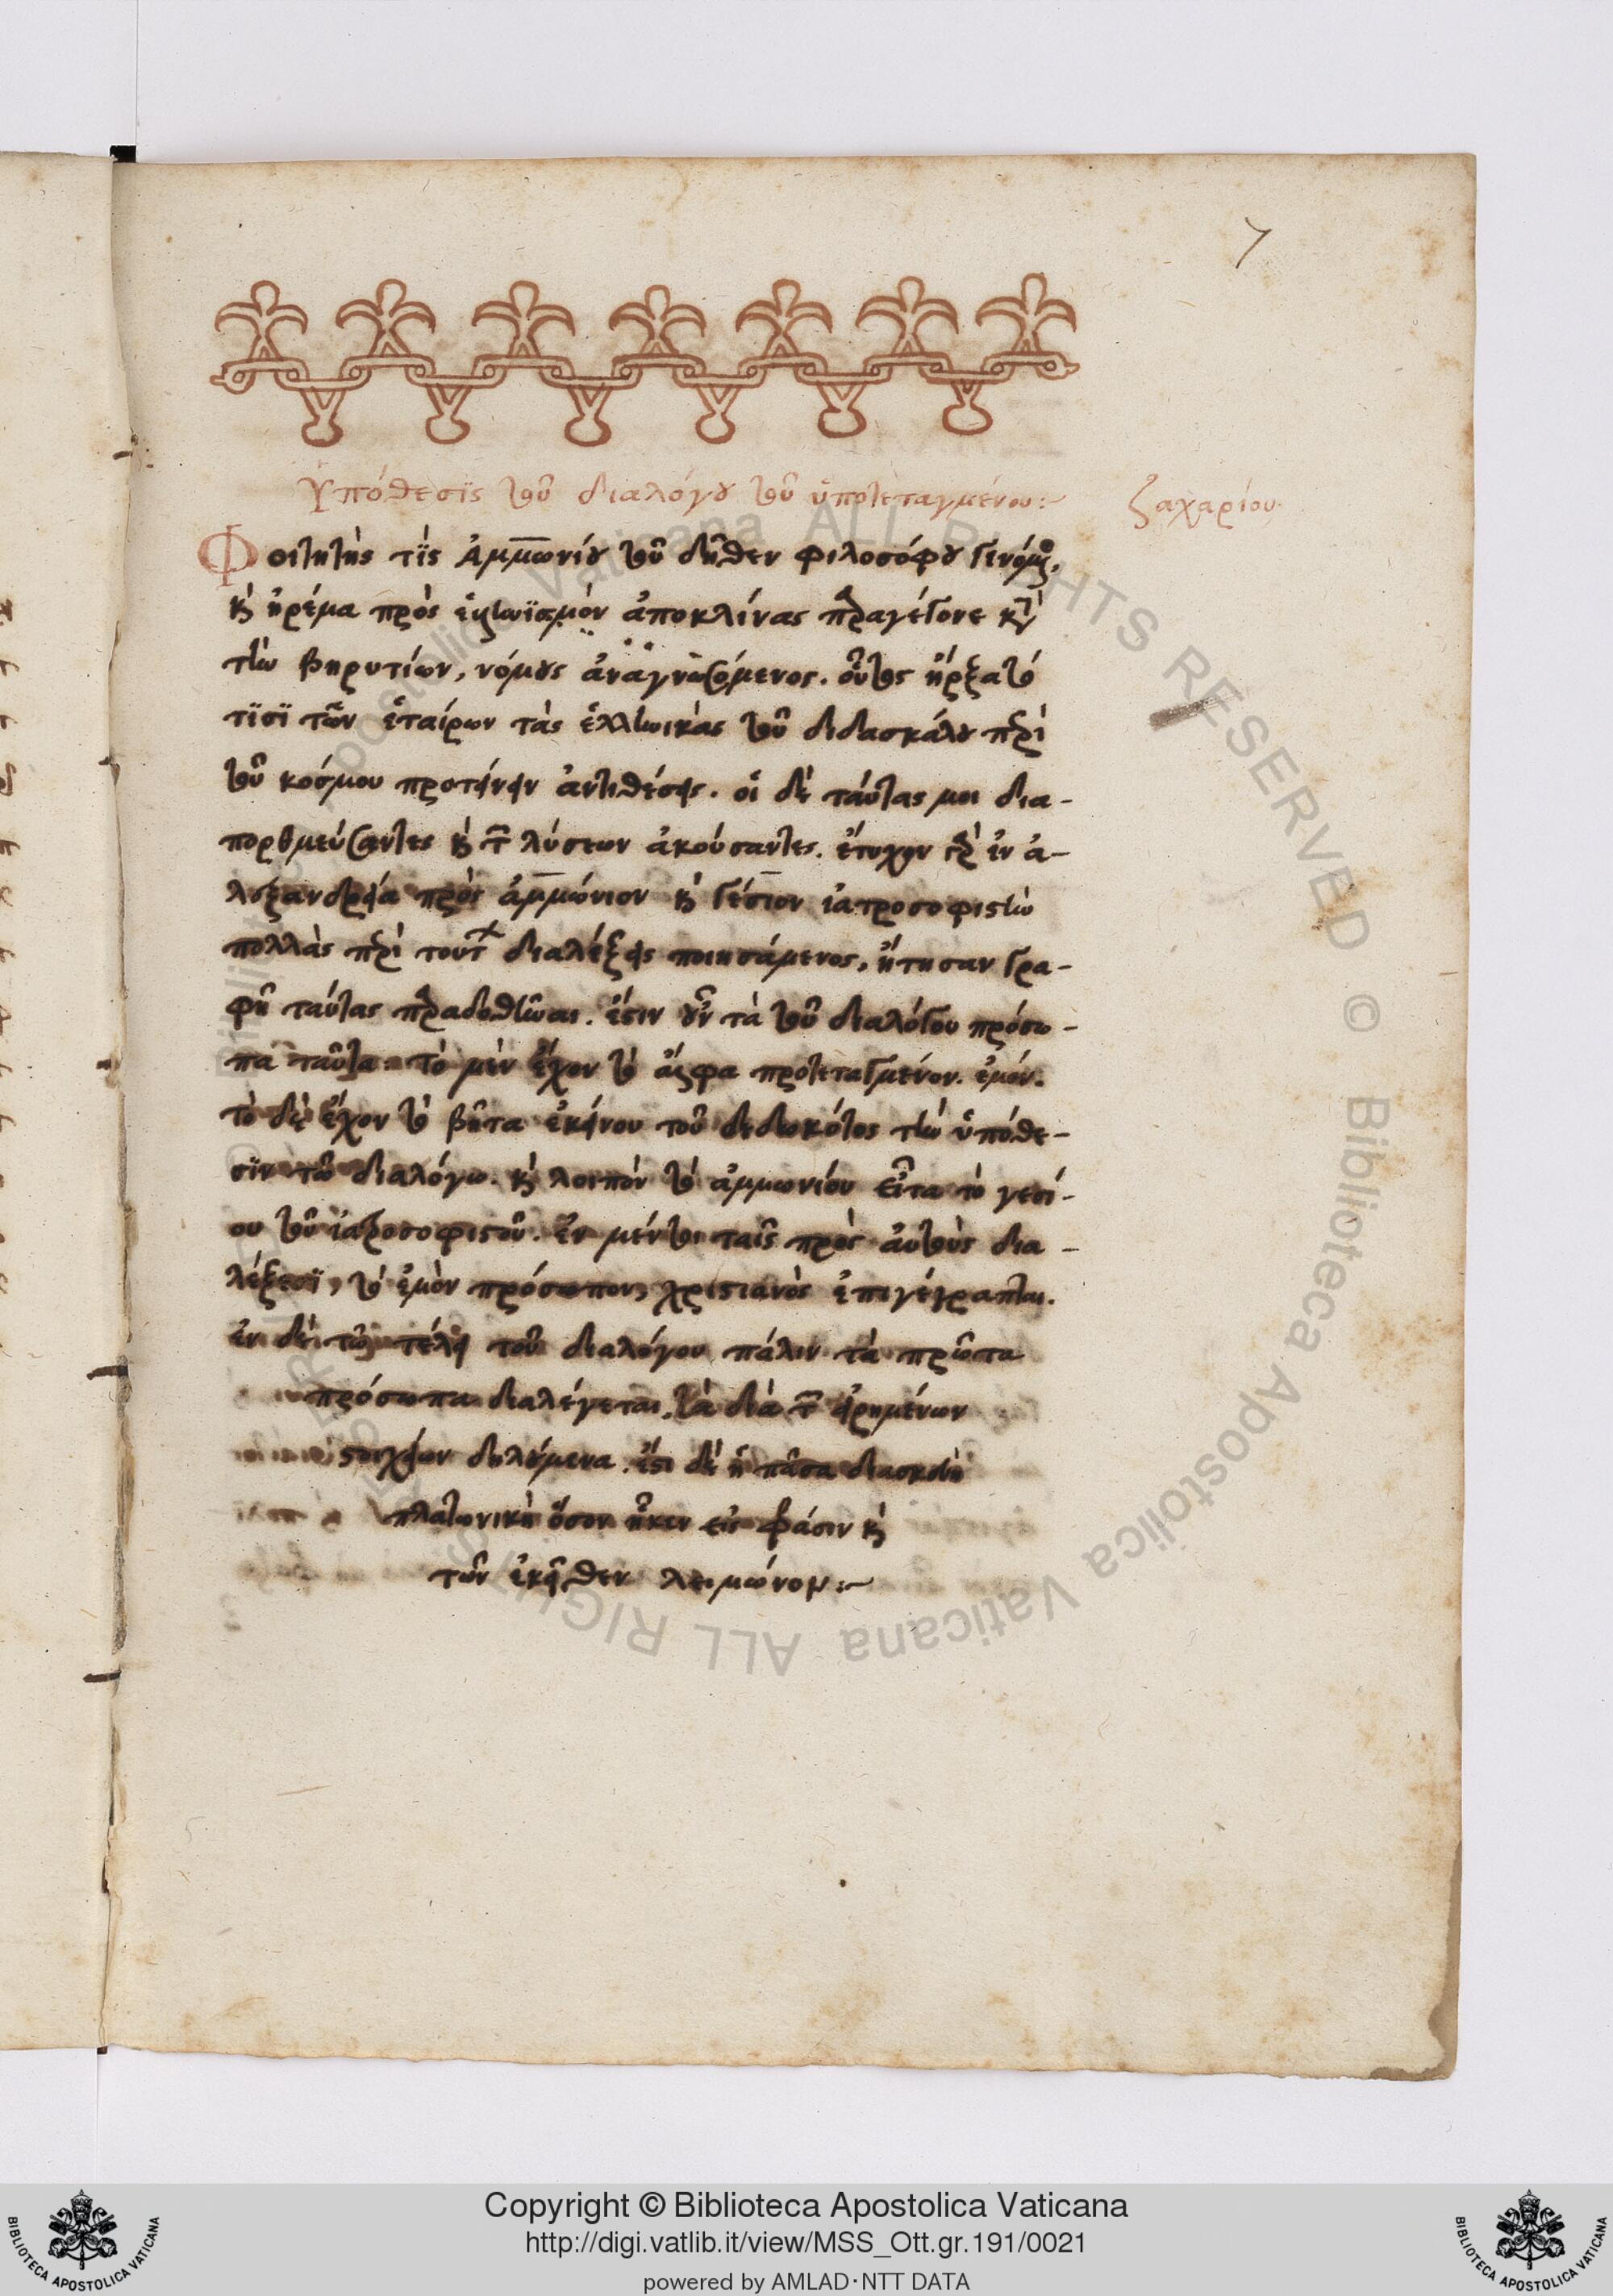 7
Ὑπόθεσϊς τοῦ διαλόγου τοῦ ὑποτεταγμένου:~
ζαχαρίου
Φοιτητής τϊς Ἀμμωνίου τοῦ δῆθεν φιλοσόφου γενόμενος,
καὶ ἠρέμα πρὸς ἑλληνϊσμὸν ἀποκλίνας παραγέγονε κατὰ
τὴν βηρυτίων, νόμους ἀναγνωσόμενος. οὗτος ἤρξατό
τϊσϊ τῶν ἑταίρων τὰς ἑλληνικὰς τοῦ διδασκάλου περὶ
τοῦ κόσμου προτείνειν ἀντιθέσεις. οἱ δὲ ταύτας μοι δια-
πορθμεύσαντες καὶ τῶν λύσεων ἀκούσαντες. ἔτυχον γὰρ ἐν ἀ-
λεξανδρεία πρὸς ἀμμώνιον καὶ γέσιον ἰατροσοφιστὴν
πολλὰς περὶ τούτων διαλέξεις ποιησάμενος, ἤτησαν γρα-
φῆ ταύτας παραδοθῆναι. ἔστιν οὖν τὰ τοῦ διαλόγου πρόσω-
πα ταῦτα τὸ μὲν ἔχον τὸ ἄλφα προτεταγμένον. ἐμόν.
τὸ δὲ ἔχον τὸ βῆτα ἐκείνου τοῦ δεδωκότος τὴν ὑπόθε-
σϊν τῶ διαλόγω. καὶ λοιπὸν τὸ ἀμμωνίου εἶτα τὸ γεσί-
ου τοῦ ἰατροσοφιστοῦ. ἐν μέντοι ταῖς πρὸς αὐτοὺς δια-
λέξεσϊ, τὸ ἐμὸν πρόσωπον, χριστιανὸς ἐπιγέγραπται.
ἐν δὲ τῶ τέλει τοῦ διαλόγου πάλιν τὰ πρῶτα
πρόσωπα διαλέγεται, τὰ διὰ τῶν εἰρημένων
στοιχείων δηλούμενα. ἔστι δὲ ἡ πᾶσα διασκευὴ
πλατωνικὴ ὅσον ἧκεν εἰς φράσιν καὶ
τῶν ἐκεῖθεν λειμώνον:~
Copyright © Biblioteca Apostolica Vaticana
http://digi.vatlib.it/view/MSS_Ott.gr.191/0021
powered by AMLAD·NTT DATA
BIBLIOTECA APOSTOLICA VATICANA
BIBLIOTECA APOSTOLICA VATICANA
© Biblioteca Apostolica Vaticana ALL RIGHTS RESERVED
© Biblioteca Apostolica Vaticana ALL RIGHTS RESERVED